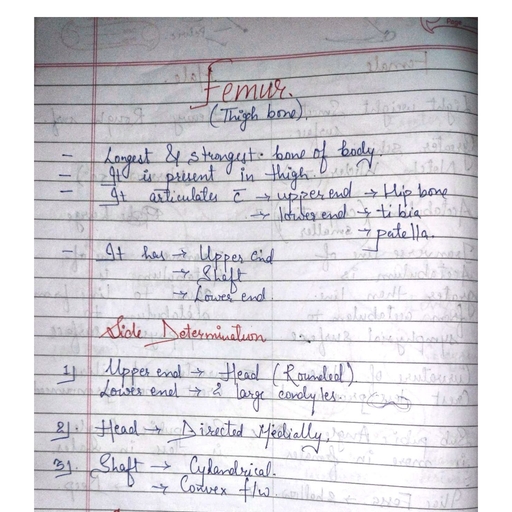 Femur.
(Thigh bone)
- Longest & strongest. bone of body
- It is present in thigh.
- It articulates c̄ → upper end → Hip bone
→ lower end → tibia
→ patella.
- It has → Upper End
→ Shaft
→ Lower end.
Side Determination
1) Upper end → Head (Rounded)
Lower end → 2 large condyles.
2) Head → Directed Medially.
3) Shaft → Cylandrical.
→ Convex f/w.